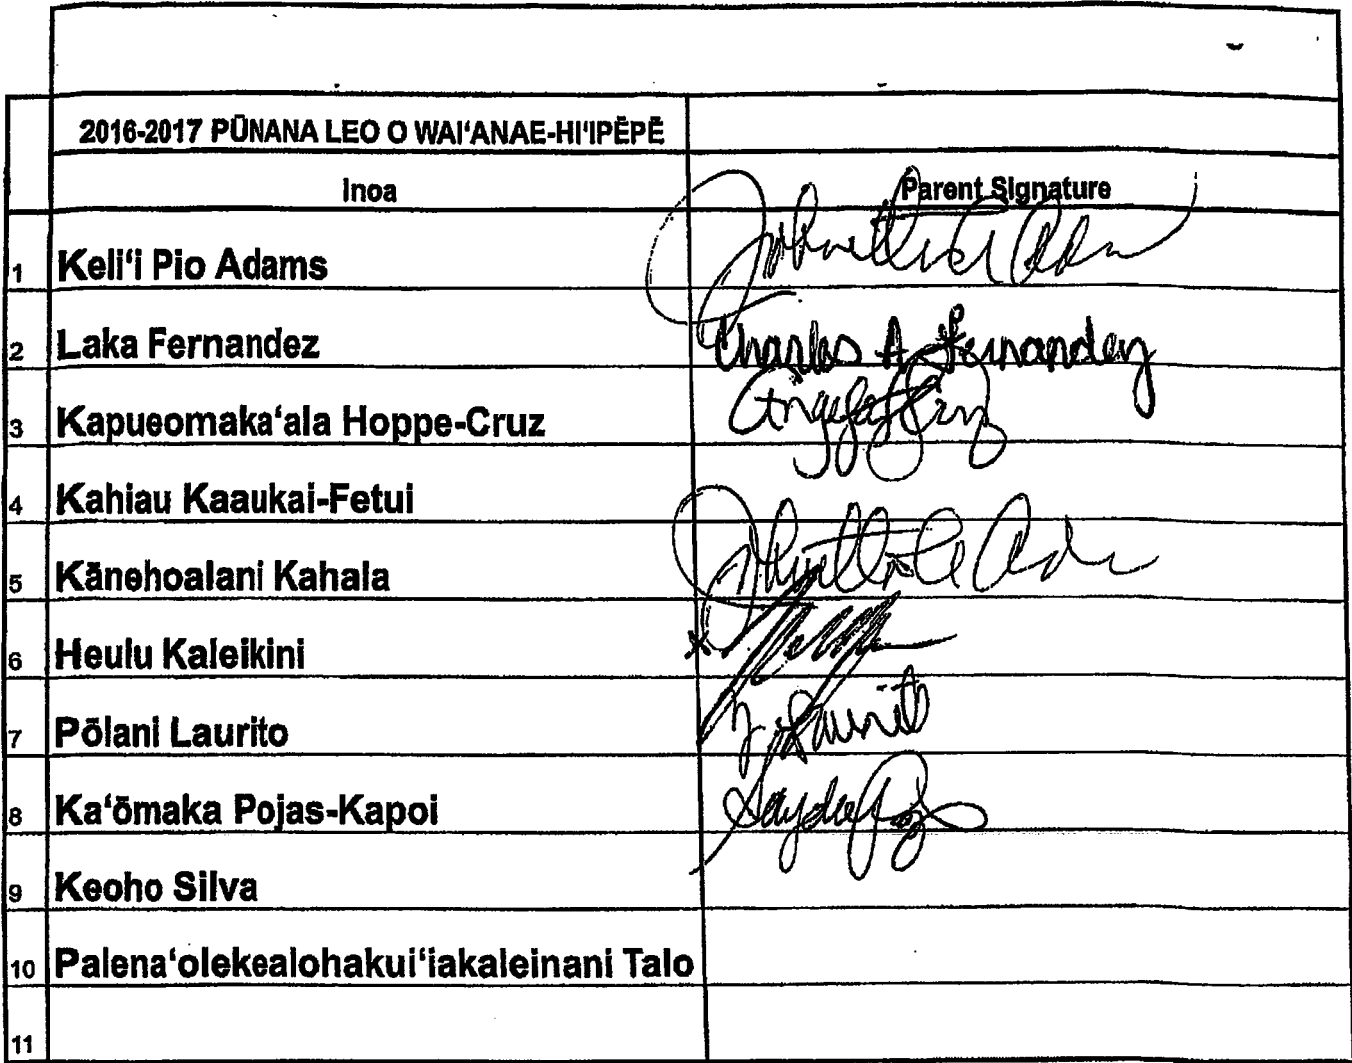 2016-2017 PŪNANA LEO O WAIʻANAE-HIʻIPĒPĒ
Inoa Parent Signature
1 Keliʻi Pio Adams
2 Laka Fernandez Charles A. Fernandez
3 Kapueomakaʻala Hoppe-Cruz Cruz
4 Kahiau Kaaukai-Fetui
5 Kānehoalani Kahala
6 Heulu Kaleikini
7 Pōlani Laurito Laurito
8 Kaʻōmaka Pojas-Kapoi
9 Keoho Silva
10 Palenaʻolekealohakuiʻiakaleinani Talo
11